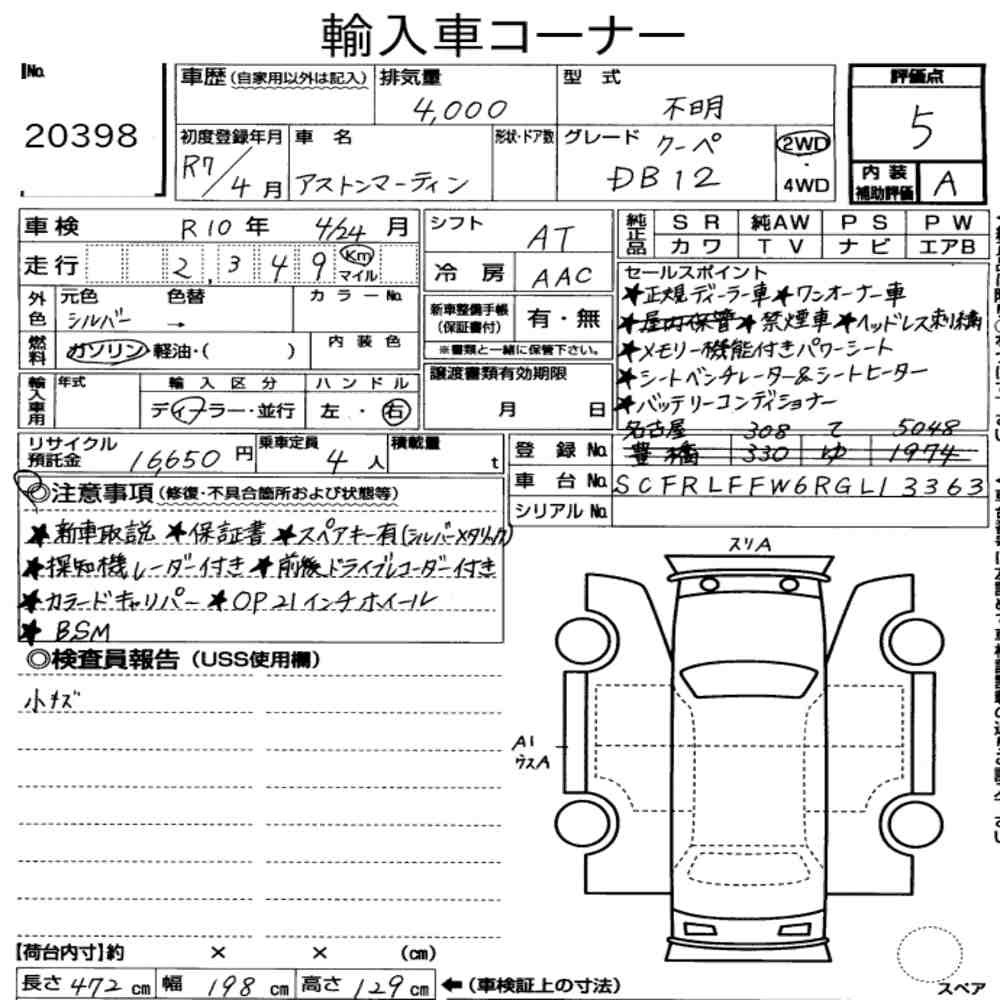 輸入車コーナー
No.
20398
車歴 (自家用以外は記入) 排気量 型式 評価点
4,000 不明 5
初度登録年月 車名 形状・ドア数 グレード クーペ 2WD
R7/4月 アストンマーティン DB12 ・ 4WD
内装補助評価 A
車検 R10年 4/24月
走行 2,349 Km マイル
外色 元色 色替 カラーNo.
シルバー →
燃料 ガソリン・軽油・( ) 内装色
輸入車用 年式 輸入区分 ハンドル
ディーラー・並行 左・右
シフト AT
冷房 AAC
新車整備手帳(保証書付) 有・無
※書類と一緒に保管下さい。
譲渡書類有効期限
月 日
純正品 SR 純AW PS PW
カワ TV ナビ エアB
セールスポイント
★正規ディーラー車★ワンオーナー車
★屋内保管★禁煙車★ヘッドレス刺繍
★メモリー機能付きパワーシート
★シートベンチレーター&シートヒーター
★バッテリーコンディショナー
名古屋 308 て 5048
リサイクル預託金 16,650円 乗車定員 4人 積載量 t
登録No. 豊橋 330 ゆ 1974
車台No. SCFRLFFW6RGL13363
シリアルNo.
◎注意事項 (修復・不具合箇所および状態等)
★新車取説 ★保証書 ★スペアキー有(シルバーメタリック)
★探知機レーダー付き ★前後ドライブレコーダー付き
★カラードキャリパー ★OP21インチホイール
★BSM
◎検査員報告 (USS使用欄)
小キズ
スリA
A1
ウスA
【荷台内寸】約 × × (cm)
長さ 472 cm 幅 198 cm 高さ 129 cm ←(車検証上の寸法)
スペア